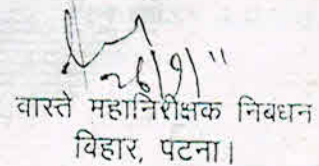 26/9/11
वास्ते महानिरीक्षक निबंधन
बिहार, पटना।